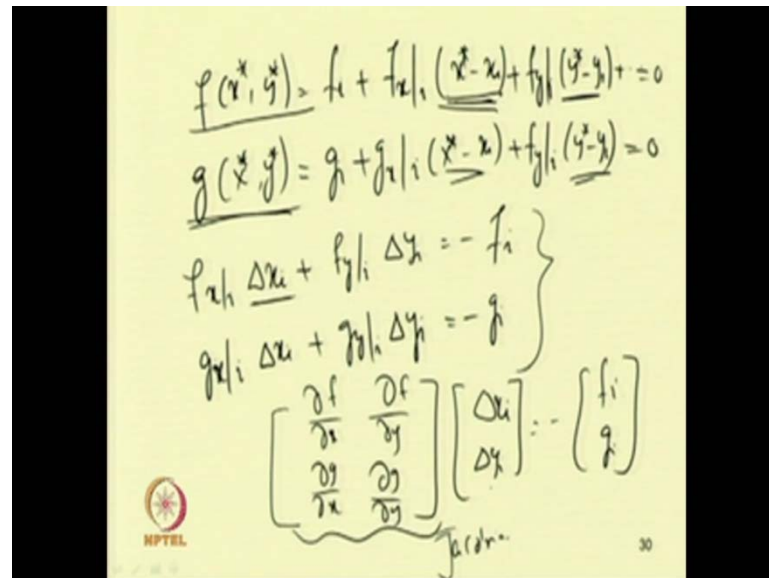 f(x*, y*) = fi + fx|i (x* - xi) + fy|i (y* - yi) + = 0
g(x*, y*) = gi + gx|i (x* - xi) + fy|i (y* - yi) = 0
fx|i Δxi + fy|i Δyi = - fi
gx|i Δxi + gy|i Δyi = - gi
[∂f/∂x ∂f/∂y ∂g/∂x ∂g/∂y] [Δxi Δyi] = - [fi gi]
NPTEL
30